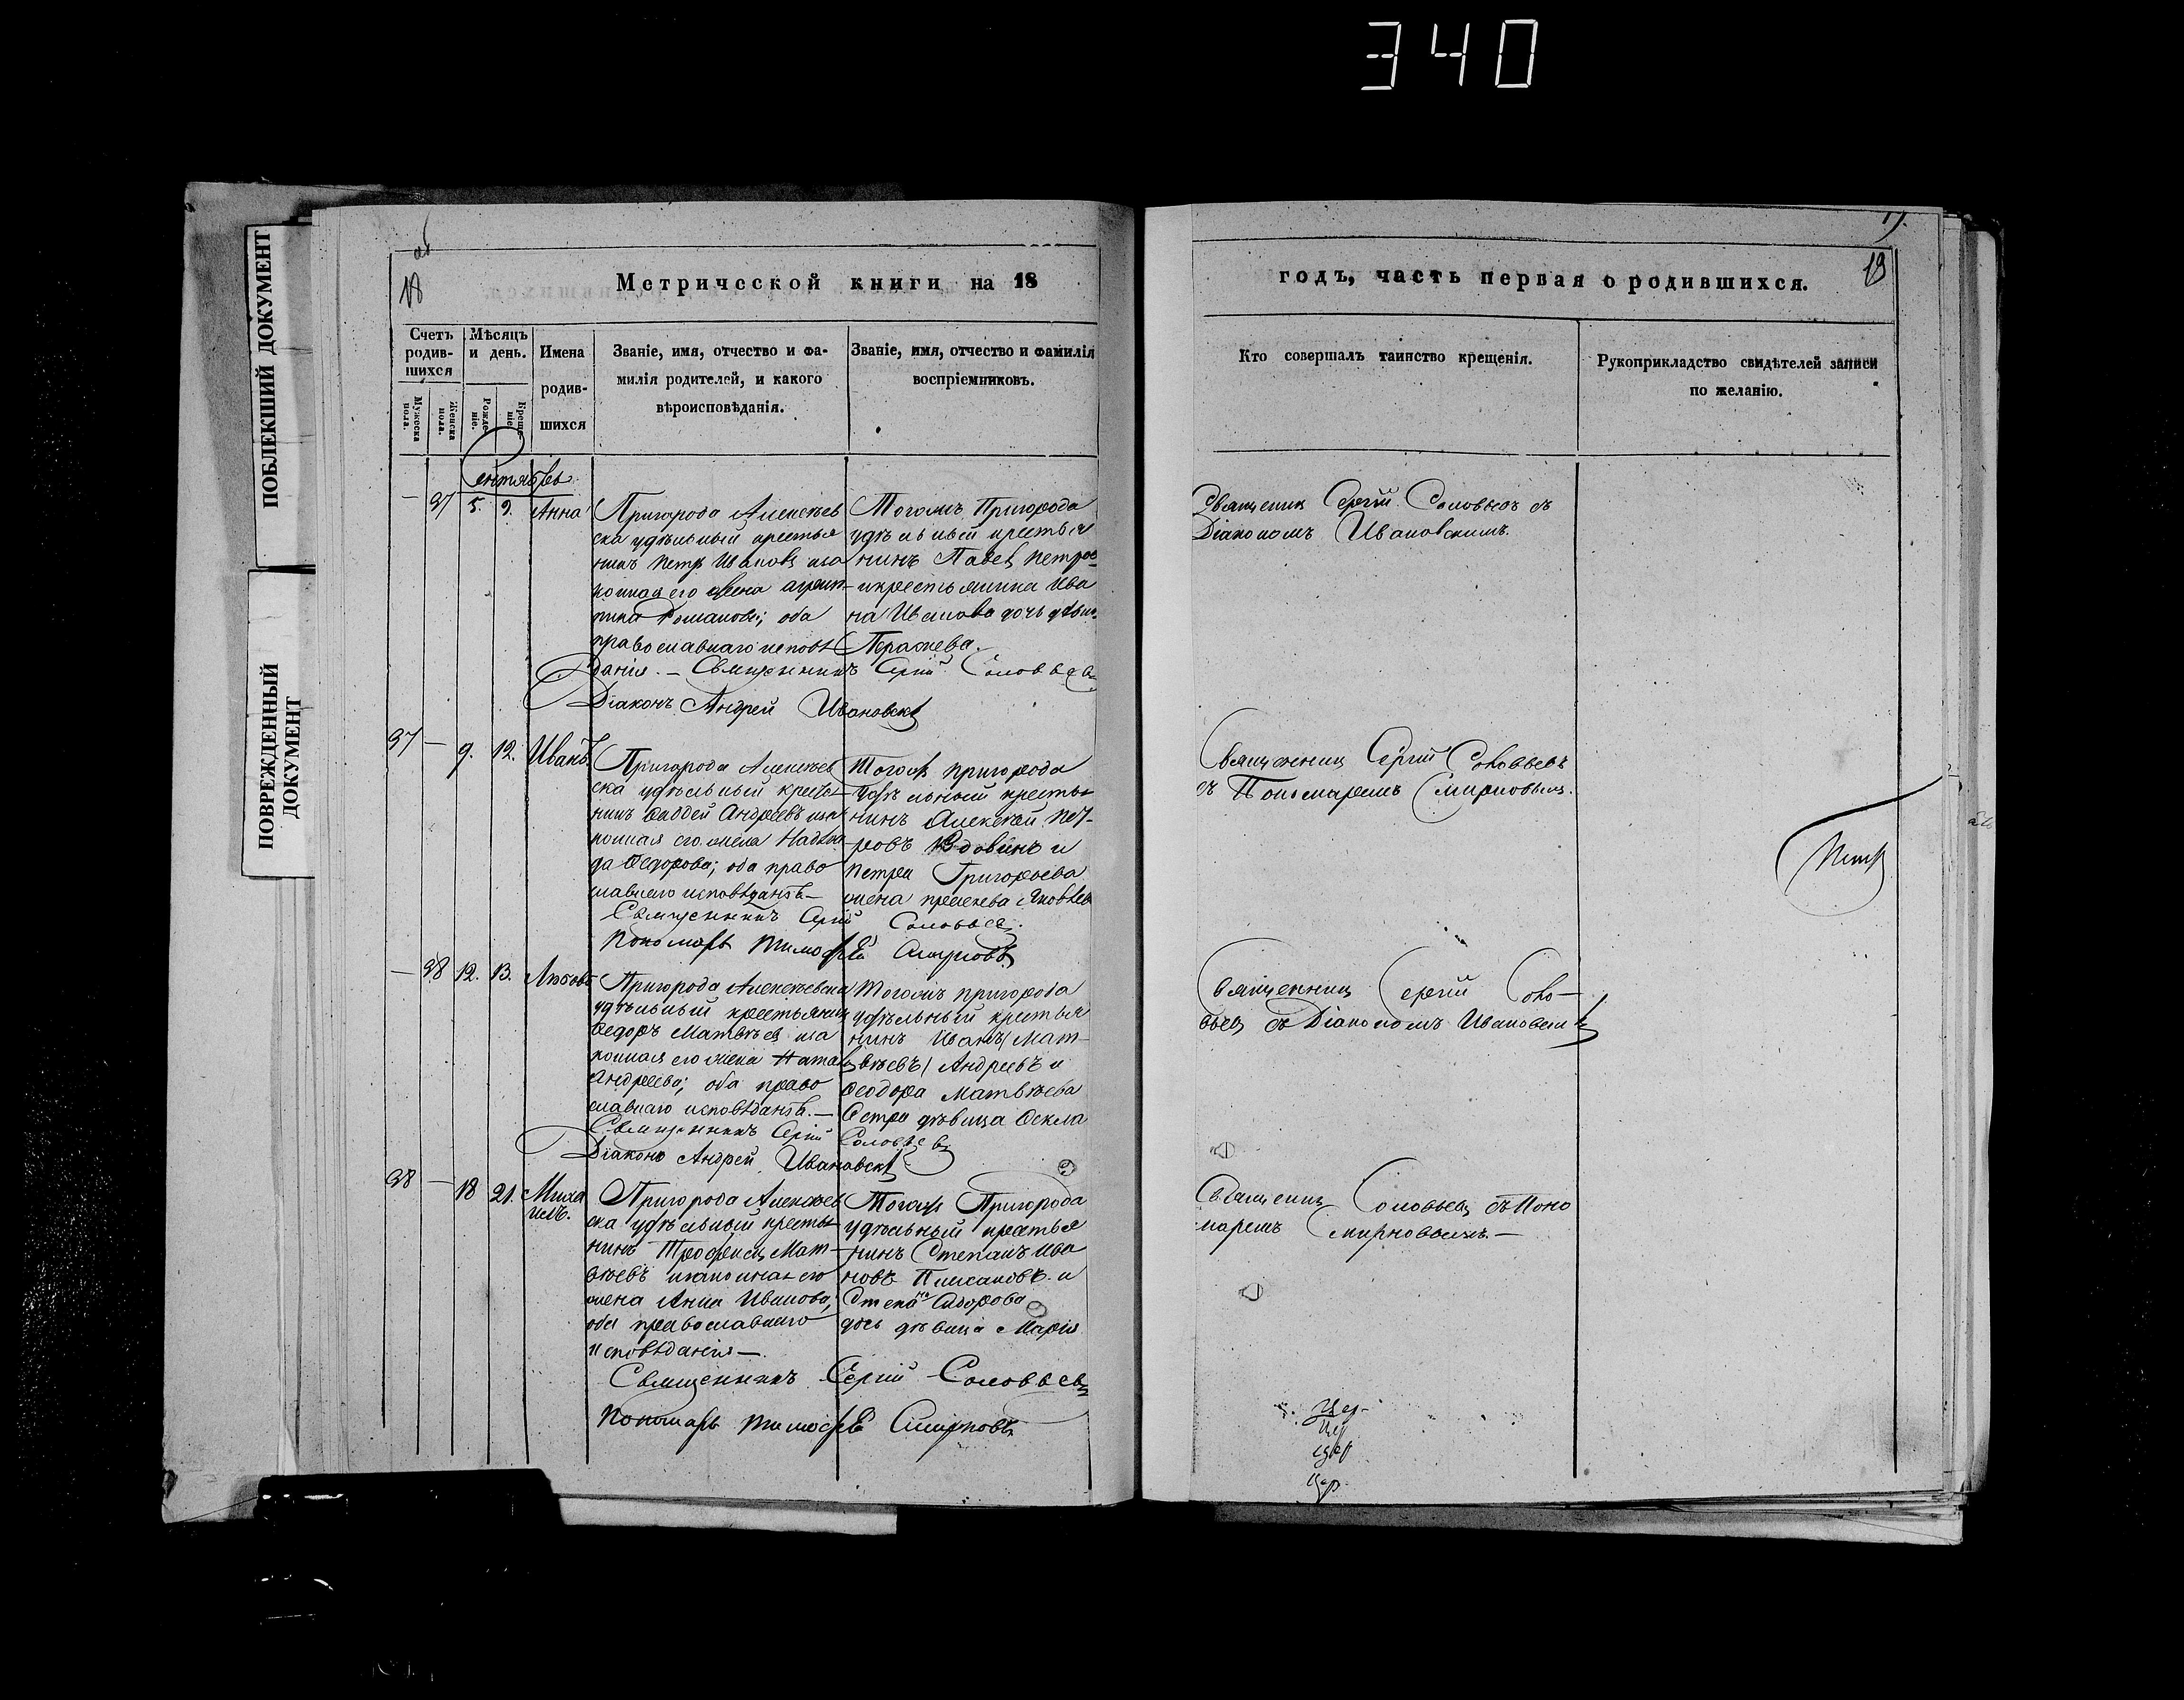 340
ПОБЛЕКШИЙ ДОКУМЕНТ
ПОВРЕЖДЕННЫЙ
ДОКУМЕНТ
об
18
Метрической книги на 18
Счетъ
родив-
шихся
Мужеска
пола.
Женска
пола.
Мѣсяцъ
и день.
Рожде-
ніе.
Креще-
ніе
Имена
родив-
шихся
Званіе, имя, отчество и фа-
милія родителей, и какого
вѣроисповѣданія.
Званіе, имя, отчество и фамилія
воспріемниковъ.
Сентябрь
— 37 5. 9. Анна
Пригорода Алексѣев
ска удѣльный крестья
нинъ Петръ Ивановъ и за
конная его жена
Романова; оба
православнаго исповѣ
данія. — Священникъ Сергій Соловьевъ
Діаконъ Андрей Ивановскій
Тогожъ Пригорода
удѣльный крестья
нинъ Павелъ Петров
и крестьянина Ива
на Иванова дочь дѣвица
37 — 9. 12. Иванъ
Пригорода Алексѣев
ска удѣльный крестья
нинъ Фаддей Андреевъ и за
конная его жена Надеж
да Федорова; оба право
славнаго исповѣданія —
Священникъ Сергій Соловьевъ.
Пономарь Тимофей Смирновъ
Тогожъ пригорода
удѣльный крестья
нинъ Алексѣй Пет-
ровъ Вдовинъ и
Петра Григорьева
жена Яковлева
— 38 12. 13. Любовь
Пригорода Алексѣевска
удѣльный крестьянинъ
Федоръ Матвѣевъ и за
конная его жена Наталья
Андреева; оба право
славнаго исповѣданія. —
Священникъ Сергій Соловьевъ
Діаконъ Андрей Ивановскій
Тогожъ пригорода
удѣльный крестья
нинъ Иванъ (Мат-
вѣевъ) Андреевъ и
Феодора Матвѣева
сестра дѣвица Фекла
38 — 18 21. Миха
илъ.
Пригорода Алексѣев
ска удѣльный крестья
нинъ Трофимъ Мат-
вѣевъ и законная его
жена Анна Иванова;
оба православнаго
исповѣданія —.
Священникъ Сергій Соловьевъ
Пономарь Тимофей Смирновъ
Тогожъ Пригорода
удѣльный крестья
нинъ Степанъ Ива
новъ и
Степана Сидорова
дочь дѣвица Марія
19
годъ, часть первая о родившихся.
Кто совершалъ таинство крещенія.
Рукоприкладство свидѣтелей записи
по желанію.
Священникъ Сергій Соловьевъ съ
Діакономъ Ивановскимъ.
Священникъ Сергій Соловьевъ
съ Пономаремъ Смирновымъ.
Священникъ Сергій Соло-
вьевъ съ Діакономъ Ивановскимъ
Священникъ Соловьевъ съ Поно
маремъ Смирновымъ. —